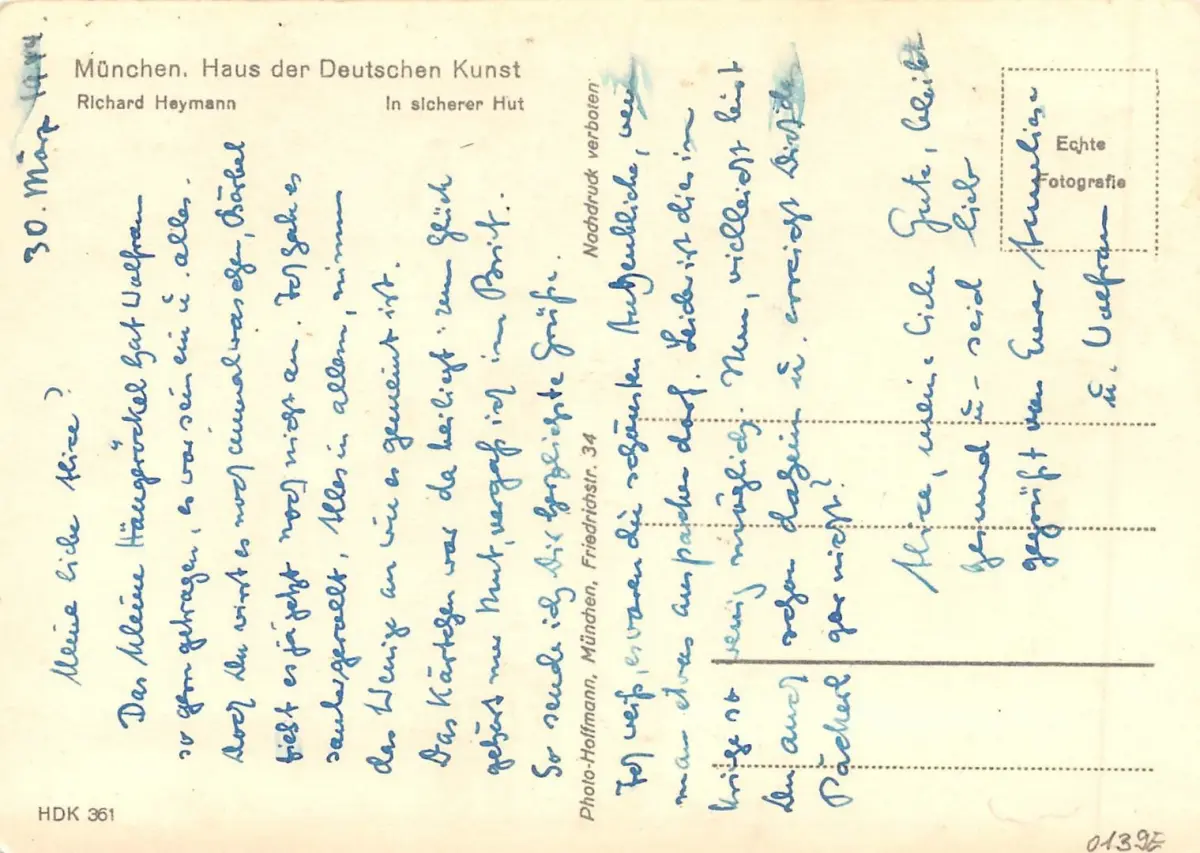 München. Haus der Deutschen Kunst
Richard Heymann In sicherer Hut
30. März
Meine liebe Alice!
Das kleine Hängeröckel hat Wolfram
so gern getragen, es war sein ein u. alles.
Doch Du wirst es noch einmal waschen, Bärbel
zieht es ja jetzt noch nicht an. Ich habe es
saubergerollt, Alles in allem, nimm
das Wenige an wie es gemeint ist.
Das Kärtchen war da beiliegt zum Glück
gehört nur Mut, vergaß ich im Brief.
So sende ich Dir herzlichste Grüße.
Photo-Hoffmann, München, Friedrichstr. 34 Nachdruck verboten
Ich weiß, es waren die schönsten Augenblicke, wenn
man etwas auspacken darf. Leider ist dies im
Kriege so wenig möglich. Nun, vielleicht bist
Du auch schon daheim u. erreicht Dich das
Päckerl gar nicht?
Alice, meine liebe Gute, bleibt
gesund u. seid lieb
gegrüßt von Eurer Anneliese
u. Wolfram
Echte
Fotografie
HDK 361
0139E